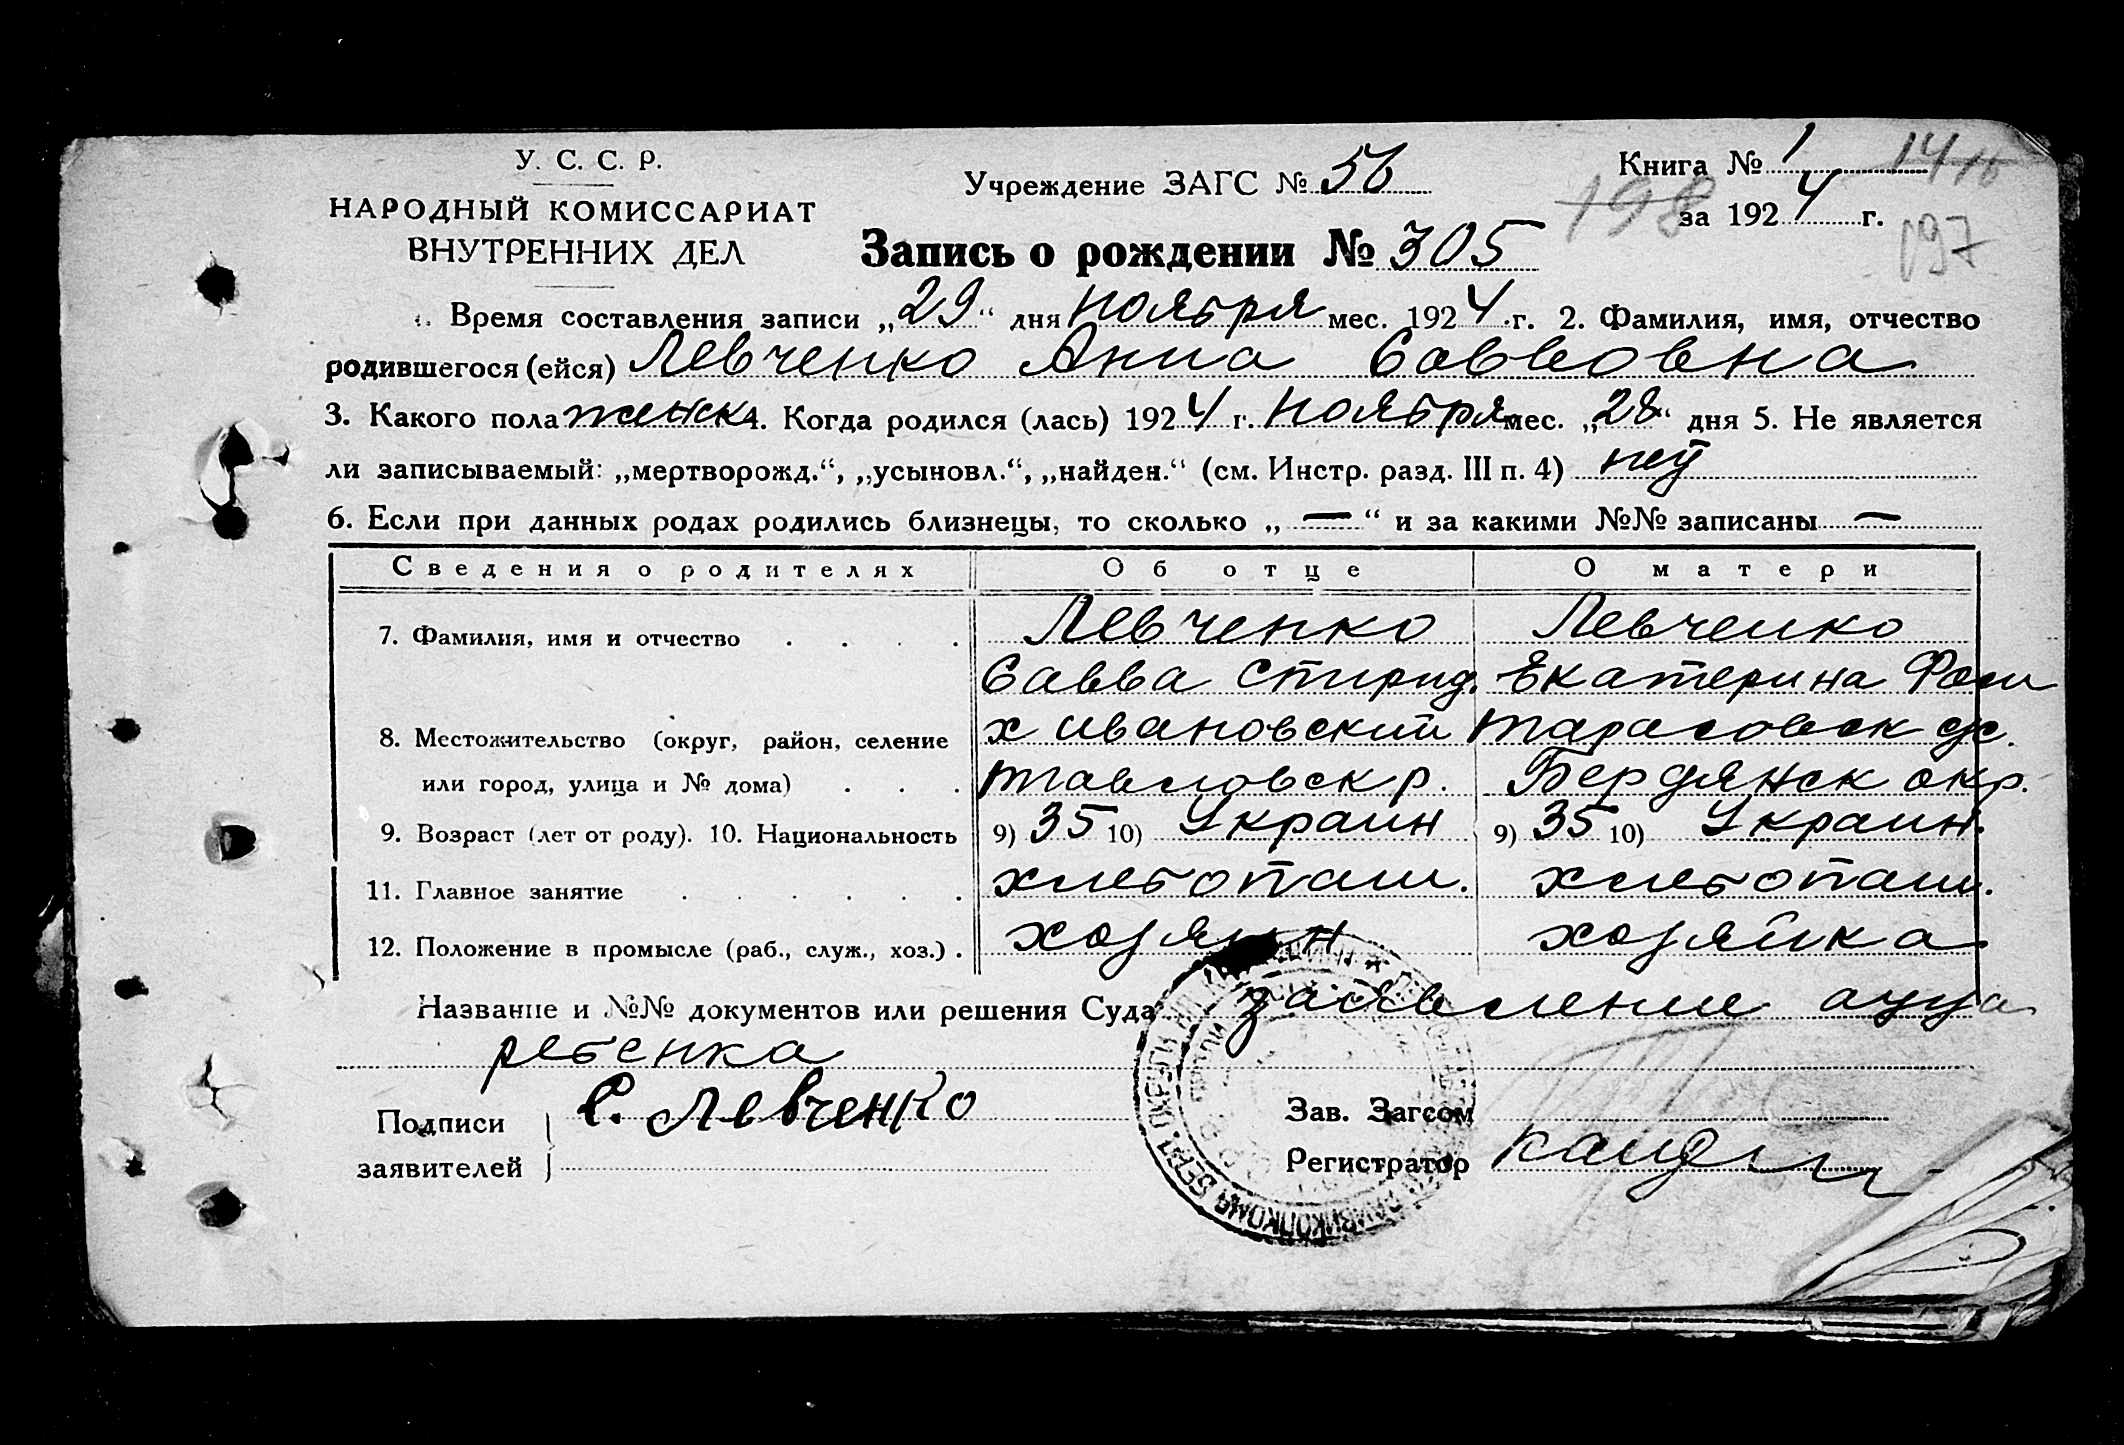 У. С. С. Р.
НАРОДНЫЙ КОМИССАРИАТ
ВНУТРЕННИХ ДЕЛ
Учреждение ЗАГС № 56
Книга № 1
за 1924 г.
198
197
Запись о рождении № 305
Время составления записи „29“ дня ноября мес. 1924 г. 2. Фамилия, имя, отчество
родившегося (ейся) Левченко Анна Саввовна
3. Какого пола женск 4. Когда родился (лась) 1924 г. ноября мес. „28“ дня 5. Не является
ли записываемый: „мертворожд.“, „усыновл.“, „найден.“ (см. Инстр. разд. III п. 4) нет
6. Если при данных родах родились близнецы, то сколько „ — “ и за какими №№ записаны —
Сведения о родителях Об отце О матери
7. Фамилия, имя и отчество . . . . Левченко Левченко
Савва Спирид. Екатерина
8. Местожительство (округ, район, селение х Ивановский Тарасовск с/с.
или город, улица и № дома) . . . р. Бердянск окр.
9. Возраст (лет от роду). 10. Национальность 9) 35 10) Украин 9) 35 10) Украин.
11. Главное занятие . . . . . . хлебопаш. хлебопаш.
12. Положение в промысле (раб., служ., хоз.) . хозяин хозяйка
Название и №№ документов или решения Суда заявление отца
ребенка
Подписи
заявителей
С. Левченко
Зав. Загсом
Регистратор